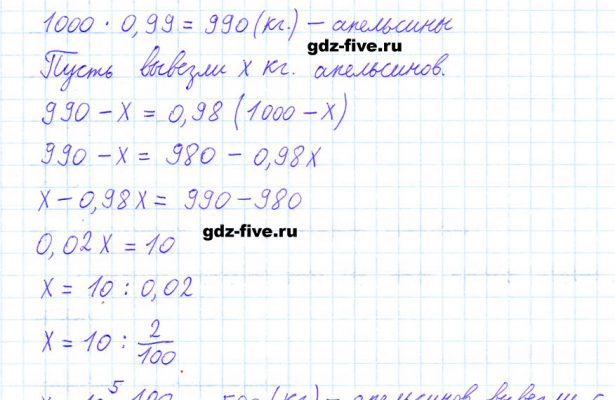 1000 · 0,99 = 990 (кг.) – апельсины
gdz-five.ru
Пусть вывезли x кг. апельсинов.
990 – x = 0,98 (1000 – x)
990 – x = 980 – 0,98x
x – 0,98x = 990 – 980
gdz-five.ru
0,02x = 10
x = 10 : 0,02
x = 10 : 2/100